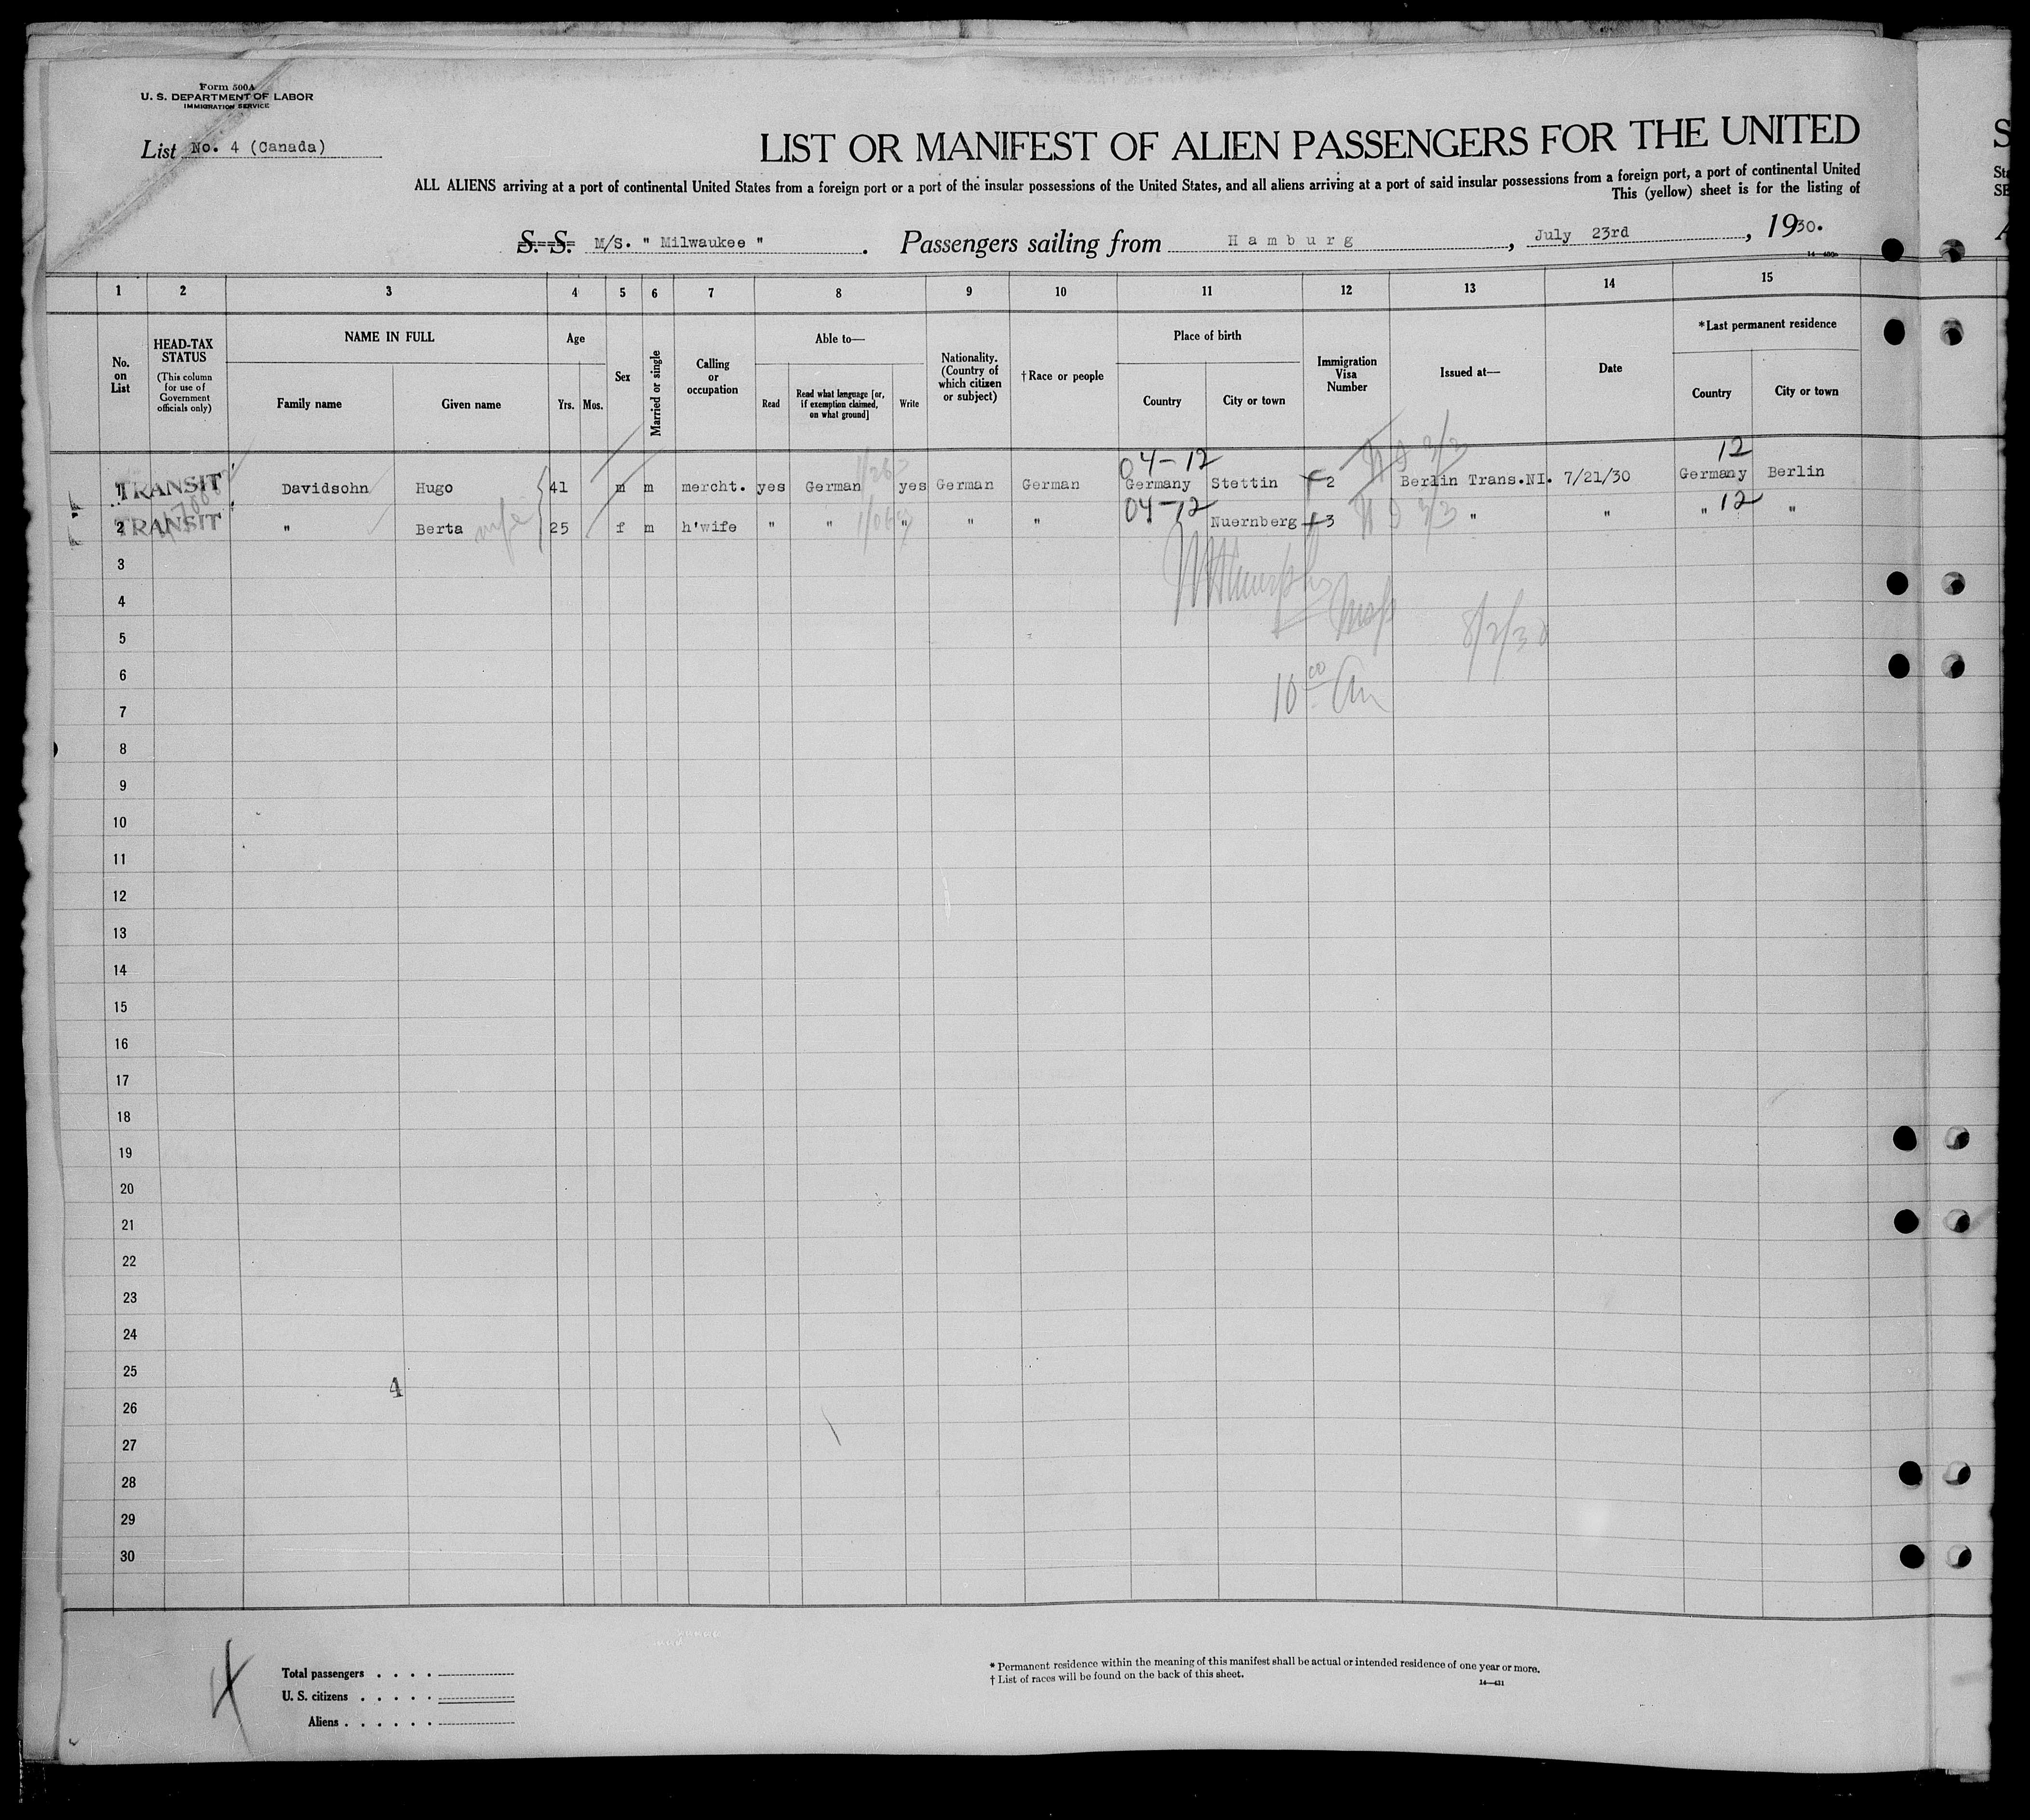 Form 500A
U. S. DEPARTMENT OF LABOR
IMMIGRATION SERVICE
List No. 4 (Canada)
LIST OR MANIFEST OF ALIEN PASSENGERS FOR THE UNITED
ALL ALIENS arriving at a port of continental United States from a foreign port or a port of the insular possessions of the United States, and all aliens arriving at a port of said insular possessions from a foreign port, a port of continental United
This (yellow) sheet is for the listing of
S. S. M/S. " Milwaukee " . Passengers sailing from Hamburg , July 23rd , 1930.
1 2 3 4 5 6 7 8 9 10 11 12 13 14 15
No. on List
HEAD-TAX STATUS
(This column for use of Government officials only)
NAME IN FULL
Family name
Given name
Age
Yrs. Mos.
Sex
Married or single
Calling or occupation
Able to—
Read
Read what language [or, if exemption claimed, on what ground]
Write
Nationality. (Country of which citizen or subject)
†Race or people
Place of birth
Country
City or town
Immigration Visa Number
Issued at—
Date
*Last permanent residence
Country
City or town
04-12 12
1 TRANSIT Davidsohn Hugo 41 m m mercht. yes German yes German German Germany Stettin 2 Berlin Trans.NI. 7/21/30 Germany Berlin
04-12 12
2 TRANSIT " Berta wife 25 f m h'wife " " " " " Nuernberg 3 " " " "
3
4
5 8/2/30
6
10 00 am
7
8
9
10
11
12
13
14
15
16
17
18
19
20
21
22
23
24
25
4
26
27
28
29
30
4
Total passengers . . . .
U. S. citizens . . . . .
Aliens . . . . . .
* Permanent residence within the meaning of this manifest shall be actual or intended residence of one year or more.
† List of races will be found on the back of this sheet.
14—431